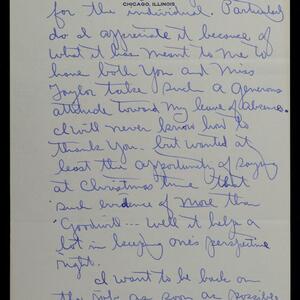 CHICAGO, ILLINOIS
for the individual. Particularly
do I appreciate it because of
what it has meant to me to
have both you and Miss
Taylor take such a generous
attitude toward my leave of absence.
I will never know how to
thank you. but wanted at
least the opportunity of saying
at Christmas time that
such evidence of more than
"Goodwill --- well it help a
lot in keeping one's perspective
right.
I want to be back on
the job as soon as possible